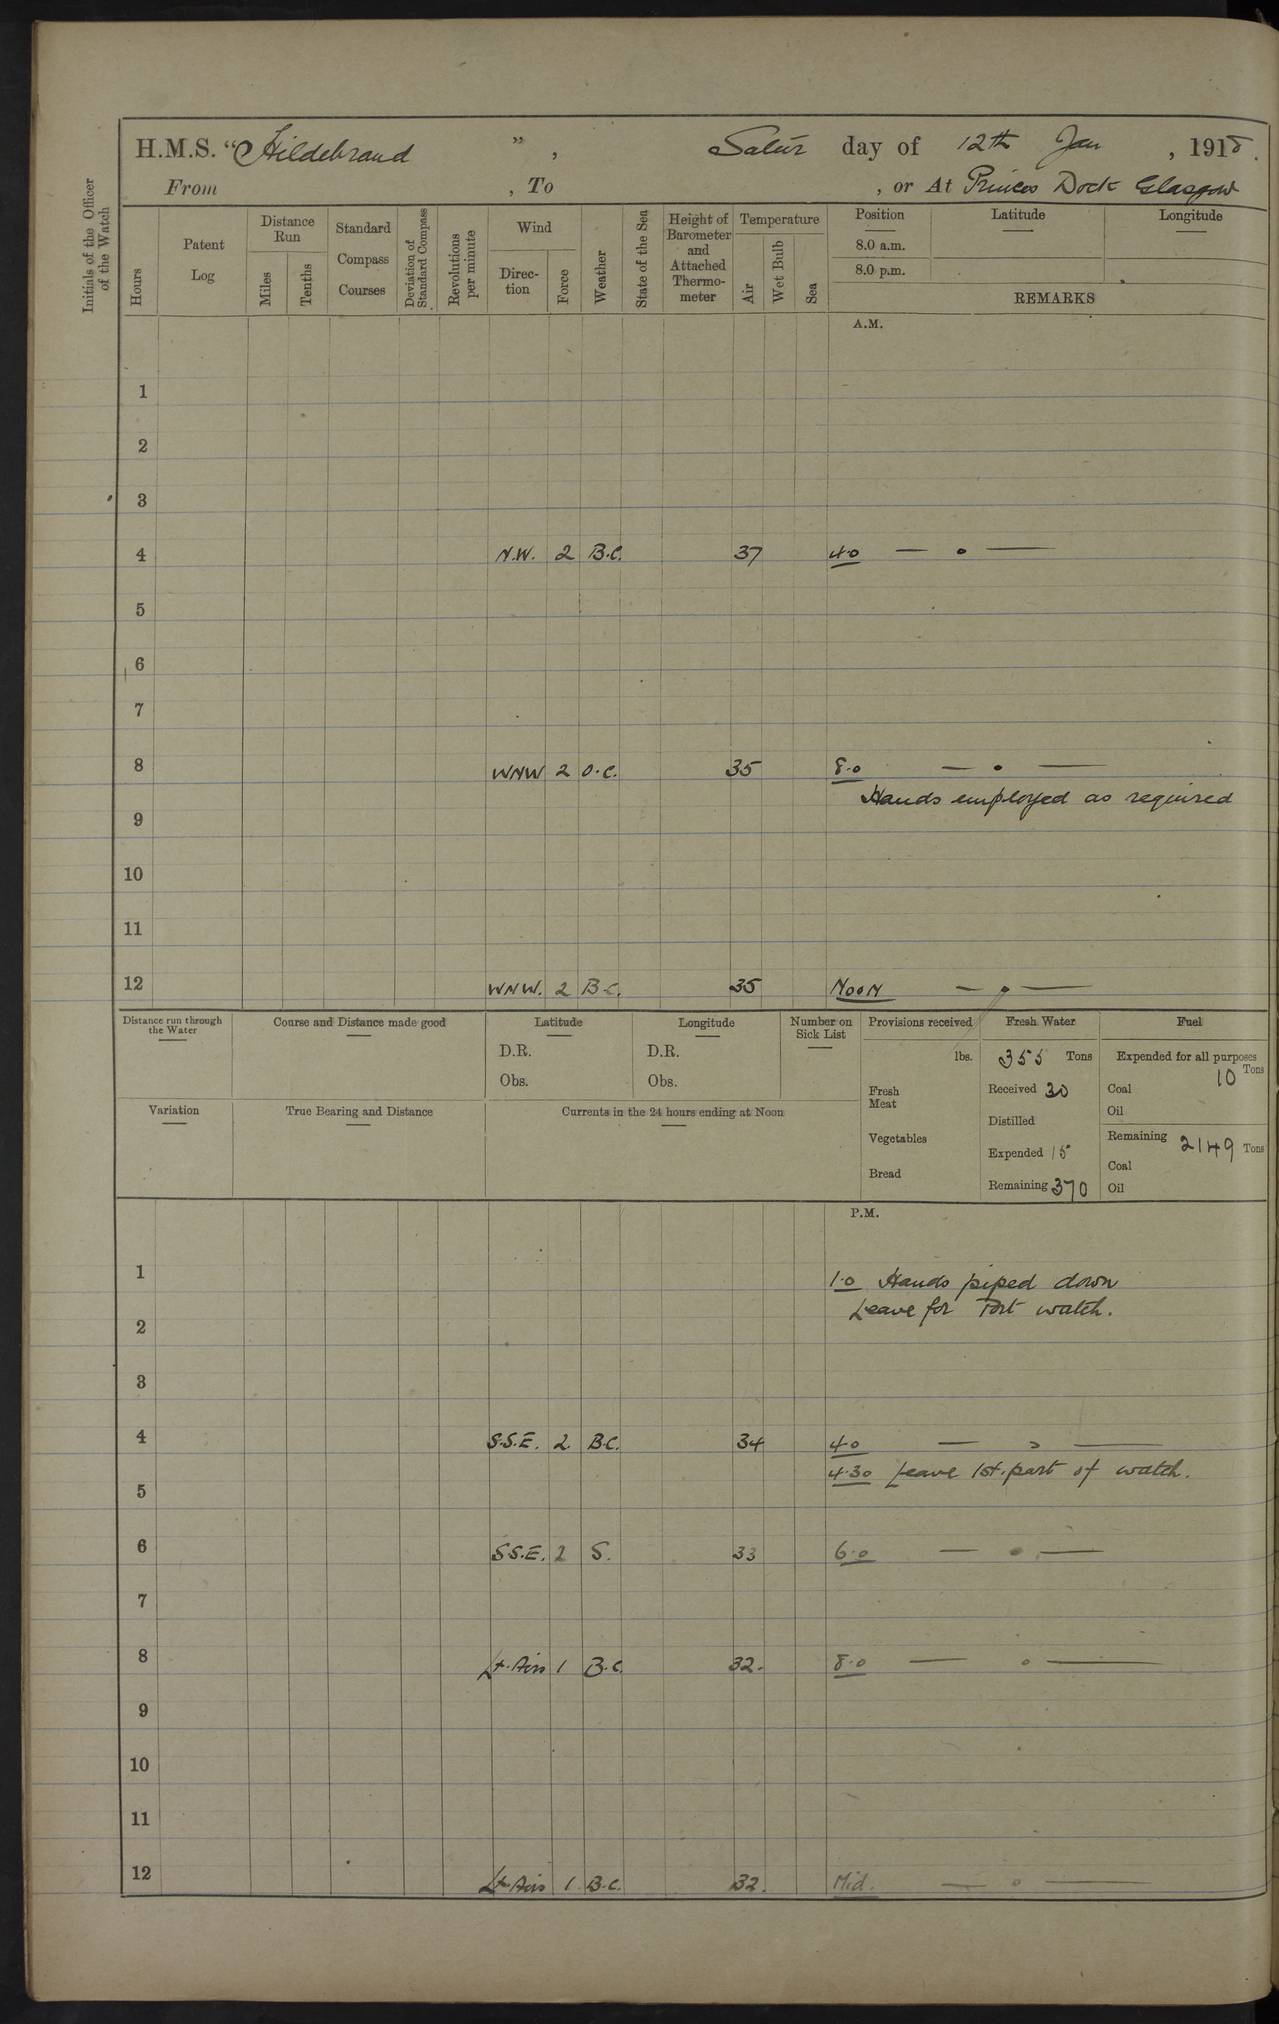 H.M.S. “Hildebrand ” , Satur day of 12th Jan , 1918.
From , To , or At Princes Dock Glasgow
Initials of the Officer of the Watch
Hours
Patent Log
Distance Run
Miles
Tenths
Standard Compass Courses
Deviation of Standard Compass
Revolutions per minute
Wind
Direc-tion
Force
Weather
State of the Sea
Height of Barometer and Attached Thermo-meter
Temperature
Air
Wet Bulb
Sea
Position Latitude Longitude
8.0 a.m.
8.0 p.m.
REMARKS
A.M.
1
2
3
4 N.W. 2 B.C. 37 4.0 — o —
5
6
7
8 WNW 2 O.C. 35 8.0 — . —
Hands employed as required
9
10
11
12 WNW. 2 B.C. 35 Noon — o —
Distance run through the Water
Course and Distance made good
Latitude
D.R.
Obs.
Longitude
D.R.
Obs.
Number on Sick List
Provisions received
lbs.
Fresh Meat
Vegetables
Bread
Fresh Water
355 Tons
Received 30
Distilled
Expended 15
Remaining 370
Fuel
Expended for all purposes
10 Tons
Coal
Oil
Remaining 2149 Tons
Coal
Oil
Variation
True Bearing and Distance
Currents in the 24 hours ending at Noon
P.M.
1 1.0 Hands piped down
Leave for Port watch.
2
3
4 S.S.E. 2 B.C. 34 4.0 — o —
4.30 Leave 1st. part of watch.
5
6 S.S.E. 2 S. 33 6.0 — o —
7
8 Lt. Airs 1 B.C. 32. 8.0 — o —
9
10
11
12 Lt. Airs 1 B.C. 32. Mid. — o —